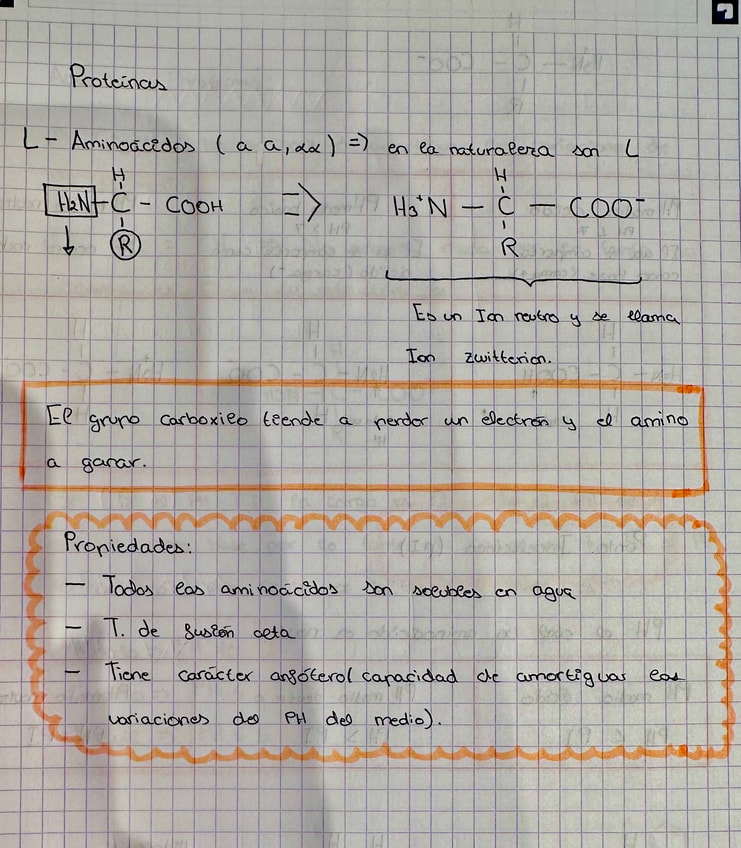 Proteínas
L - Aminoácidos ( a a, αα ) => en la naturaleza son L
H
H₂N - C - COOH => H₃⁺N - C - COO⁻
R
H
R
Es un Ion neutro y se llama
Ion zwitterion.
El grupo carboxilo tiende a perder un electrón y el amino
a ganar.
Propiedades:
- Todos los aminoácidos son solubles en agua
- T. de fusión alta
- Tiene carácter anfótero (capacidad de amortiguar las
variaciones del PH del medio).